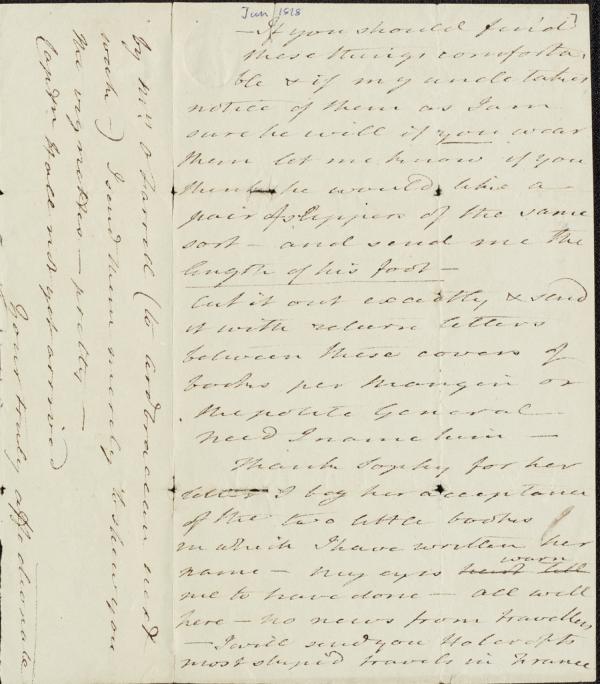 Jan 1818
– If you should find]
these things comforta
ble & if my uncle takes
notice of them as I am
sure he will if you wear
them let me know if you
think he would like a
pair of slippers of the same
sort – and send me the
length of his foot –
cut it out exactly & send
it with return letters
between these covers of
books per Mangin or
the polite General
need I name him –
Thank Sophy for her
letter I beg her acceptance
of the two little books
in which I have written her
name – my eyes warn
me to have done – all well
here – no news from travellers
– I will send you Holcroft's
most stupid travels in France
by Mrs O Farrel (to
next
week –) I send them merely to show you
the vignettes – pretty –
Captn Hall not yet arrived
Your truly affectionate